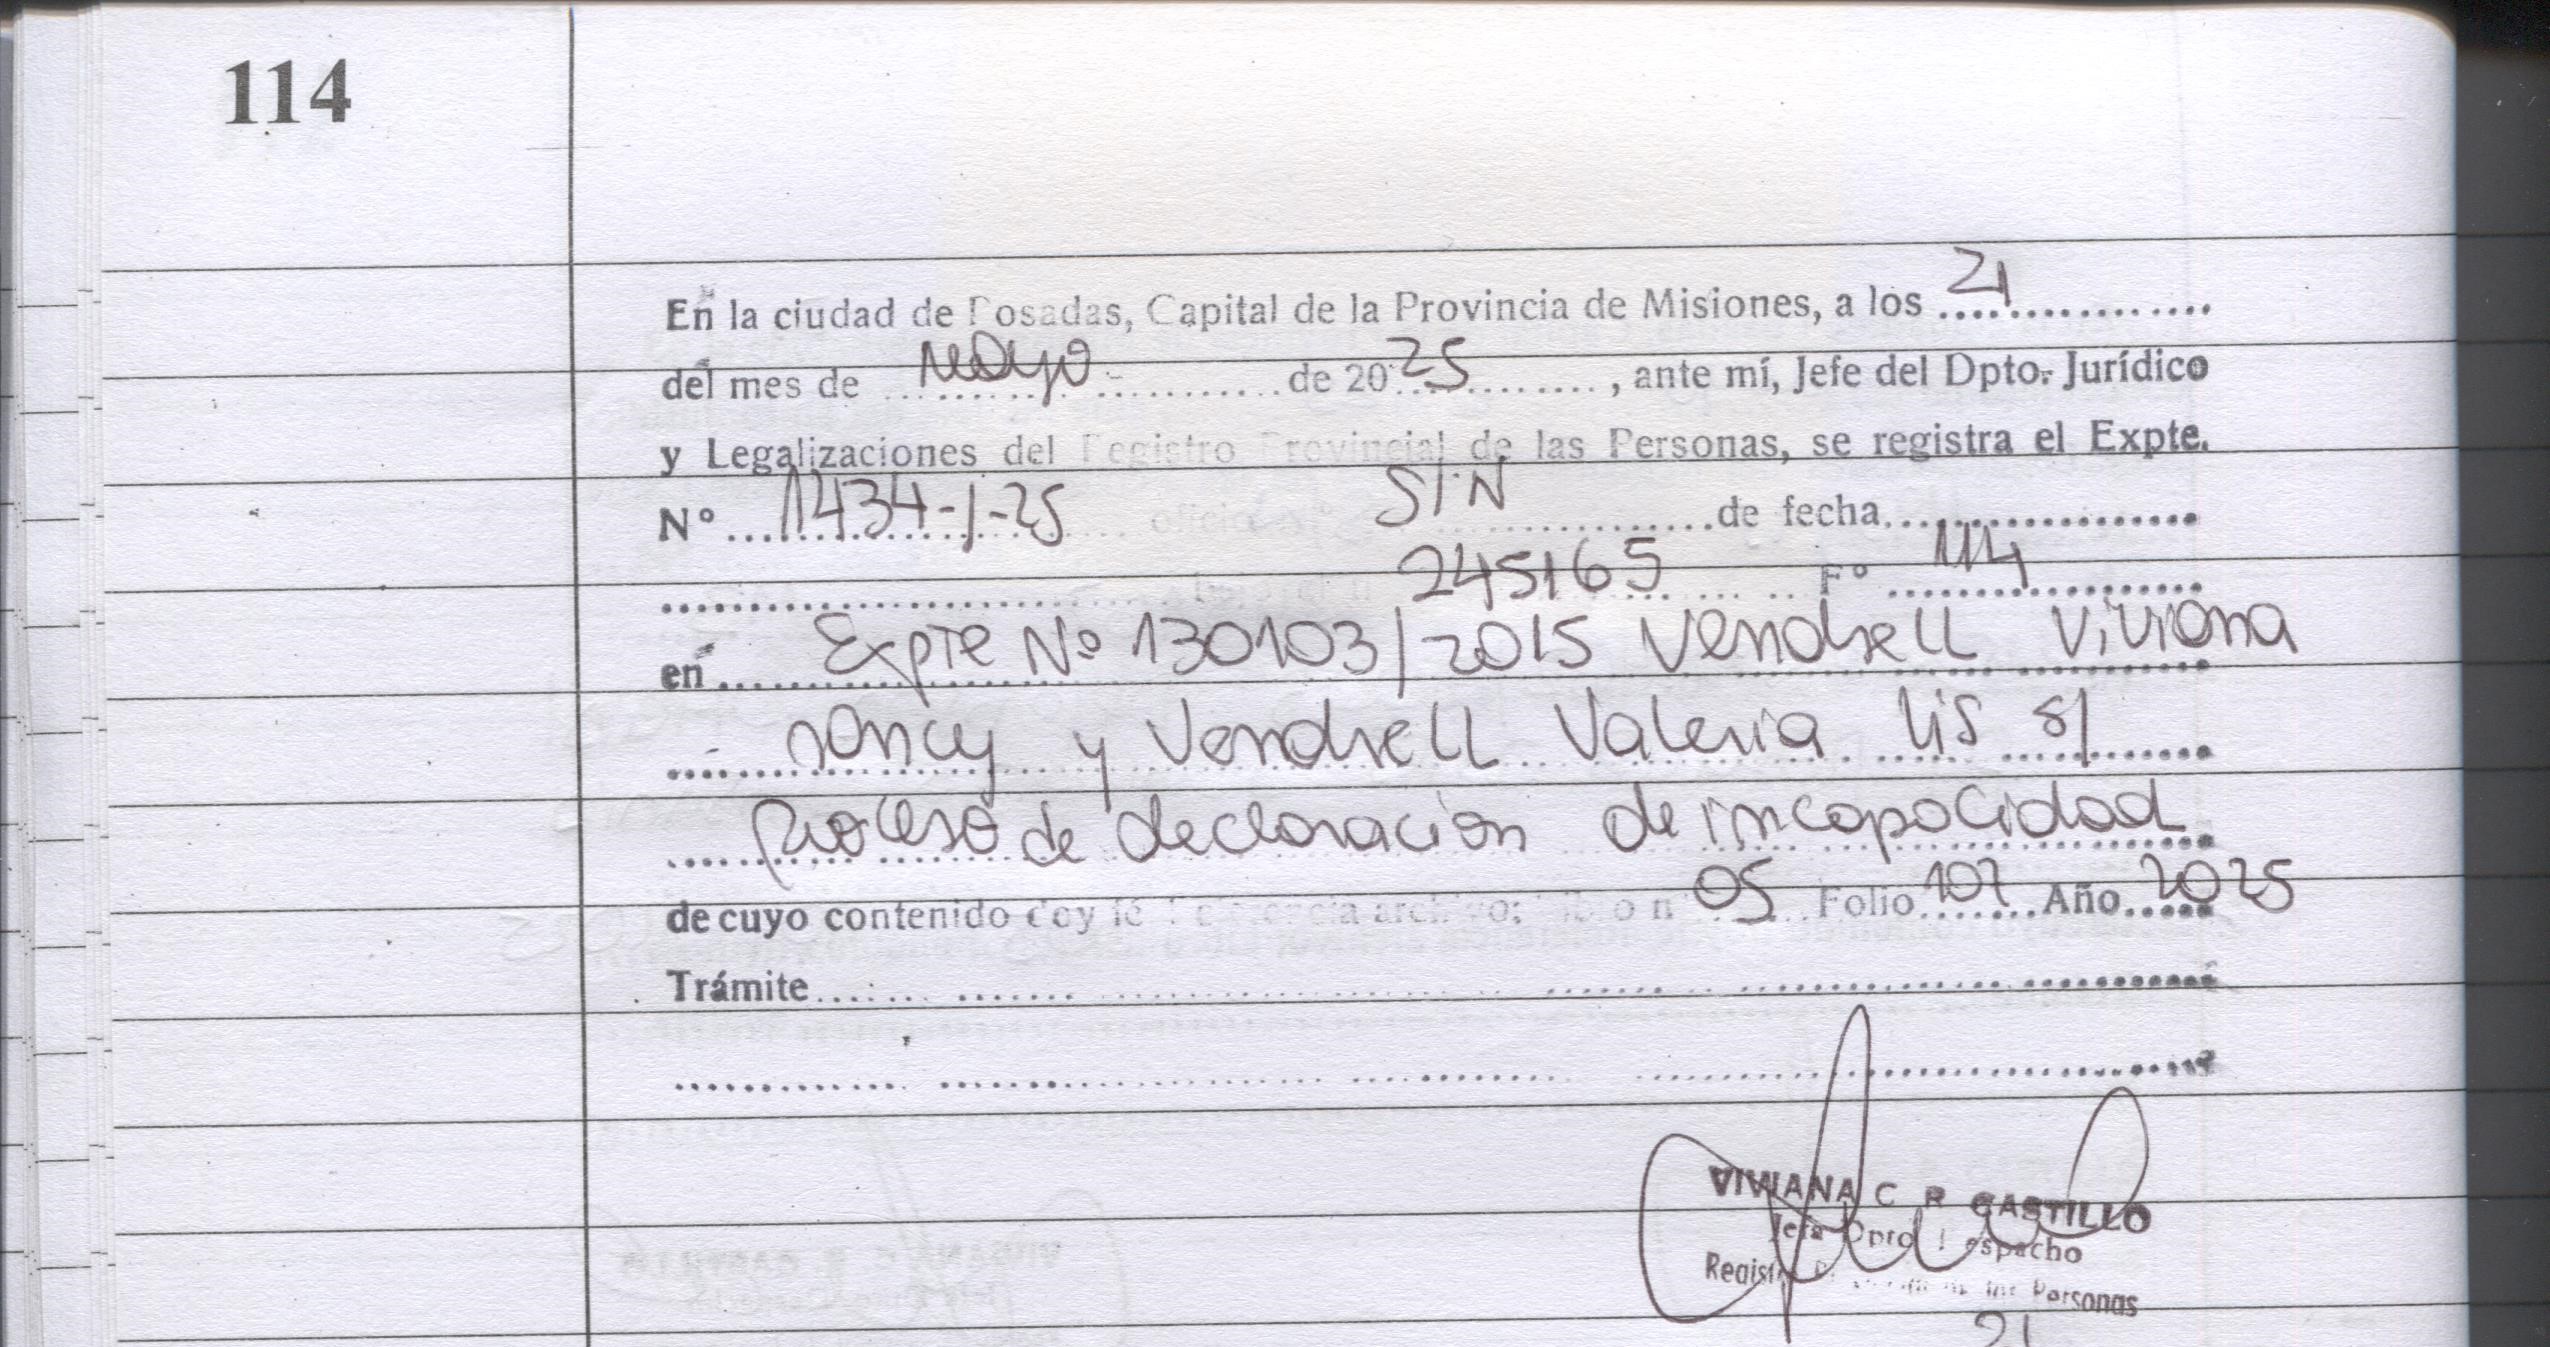 114
En la ciudad de Posadas, Capital de la Provincia de Misiones, a los 21
del mes de mayo de 2025, ante mí, Jefe del Dpto. Jurídico
y Legalizaciones del Registro Provincial de las Personas, se registra el Expte.
Nº 11434-J-25 oficio Nº S/N de fecha
245165 Fº 114
en Expte Nº 130103/2015 Vendrell Viviana
nancy y Vendrell Valeria lis s/
proceso de declaracion de incapacidad
de cuyo contenido doy fé archivo: Libro nº 05 Folio 107 Año 2025
Trámite
VIVIANA C R CASTILLO
Jefa Dpto Despacho
Registro de las Personas
21